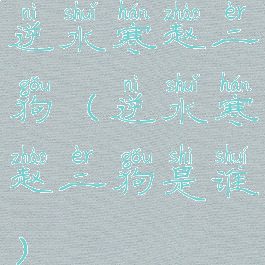 nì shuǐ hán zhào èr
逆水寒赵二
gǒu nì shuǐ hán
狗（逆水寒
zhào èr gǒu shì shuí
赵二狗是谁
）